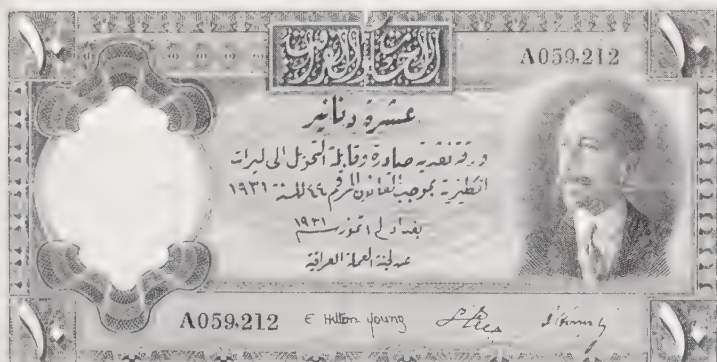 ١٠ ١٠
A059,212
عشرة دنانير
ورقة نقدية صادرة وقابلة التحويل الى ليرات
انكليزية بموجب القانون المرقم ٤٤ للسنة ١٩٣١
بغداد في ١ تموز سنة ١٩٣١
عن لجنة العملة العراقية
A059,212 E Hilton Young
١٠ ١٠